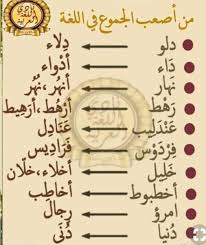 من أصعب الجموع في اللغة
دلو ← دِلاء
دَاء ← أدْواء
نَهار ← أنهُر، نُهُر
رَهط ← أرهُط، أرَهِيط
عَنْدَلِيب ← عَنَادِل
فِرْدَوْس ← فَرَادِيس
خَلِيل ← أخلاء، خُلّان
أخطبوط ← أخاطِب
امرؤ ← رِجال
دُنيا ← دُنَى